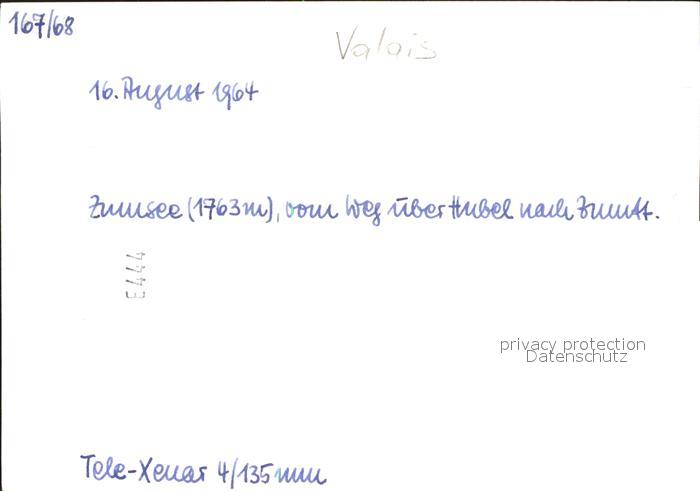 167/68
Valais
16. August 1964
Zumsee (1763m), vom Weg über Hubel nach Zmutt.
E444
privacy protection
Datenschutz
Tele-Xenar 4/135mm